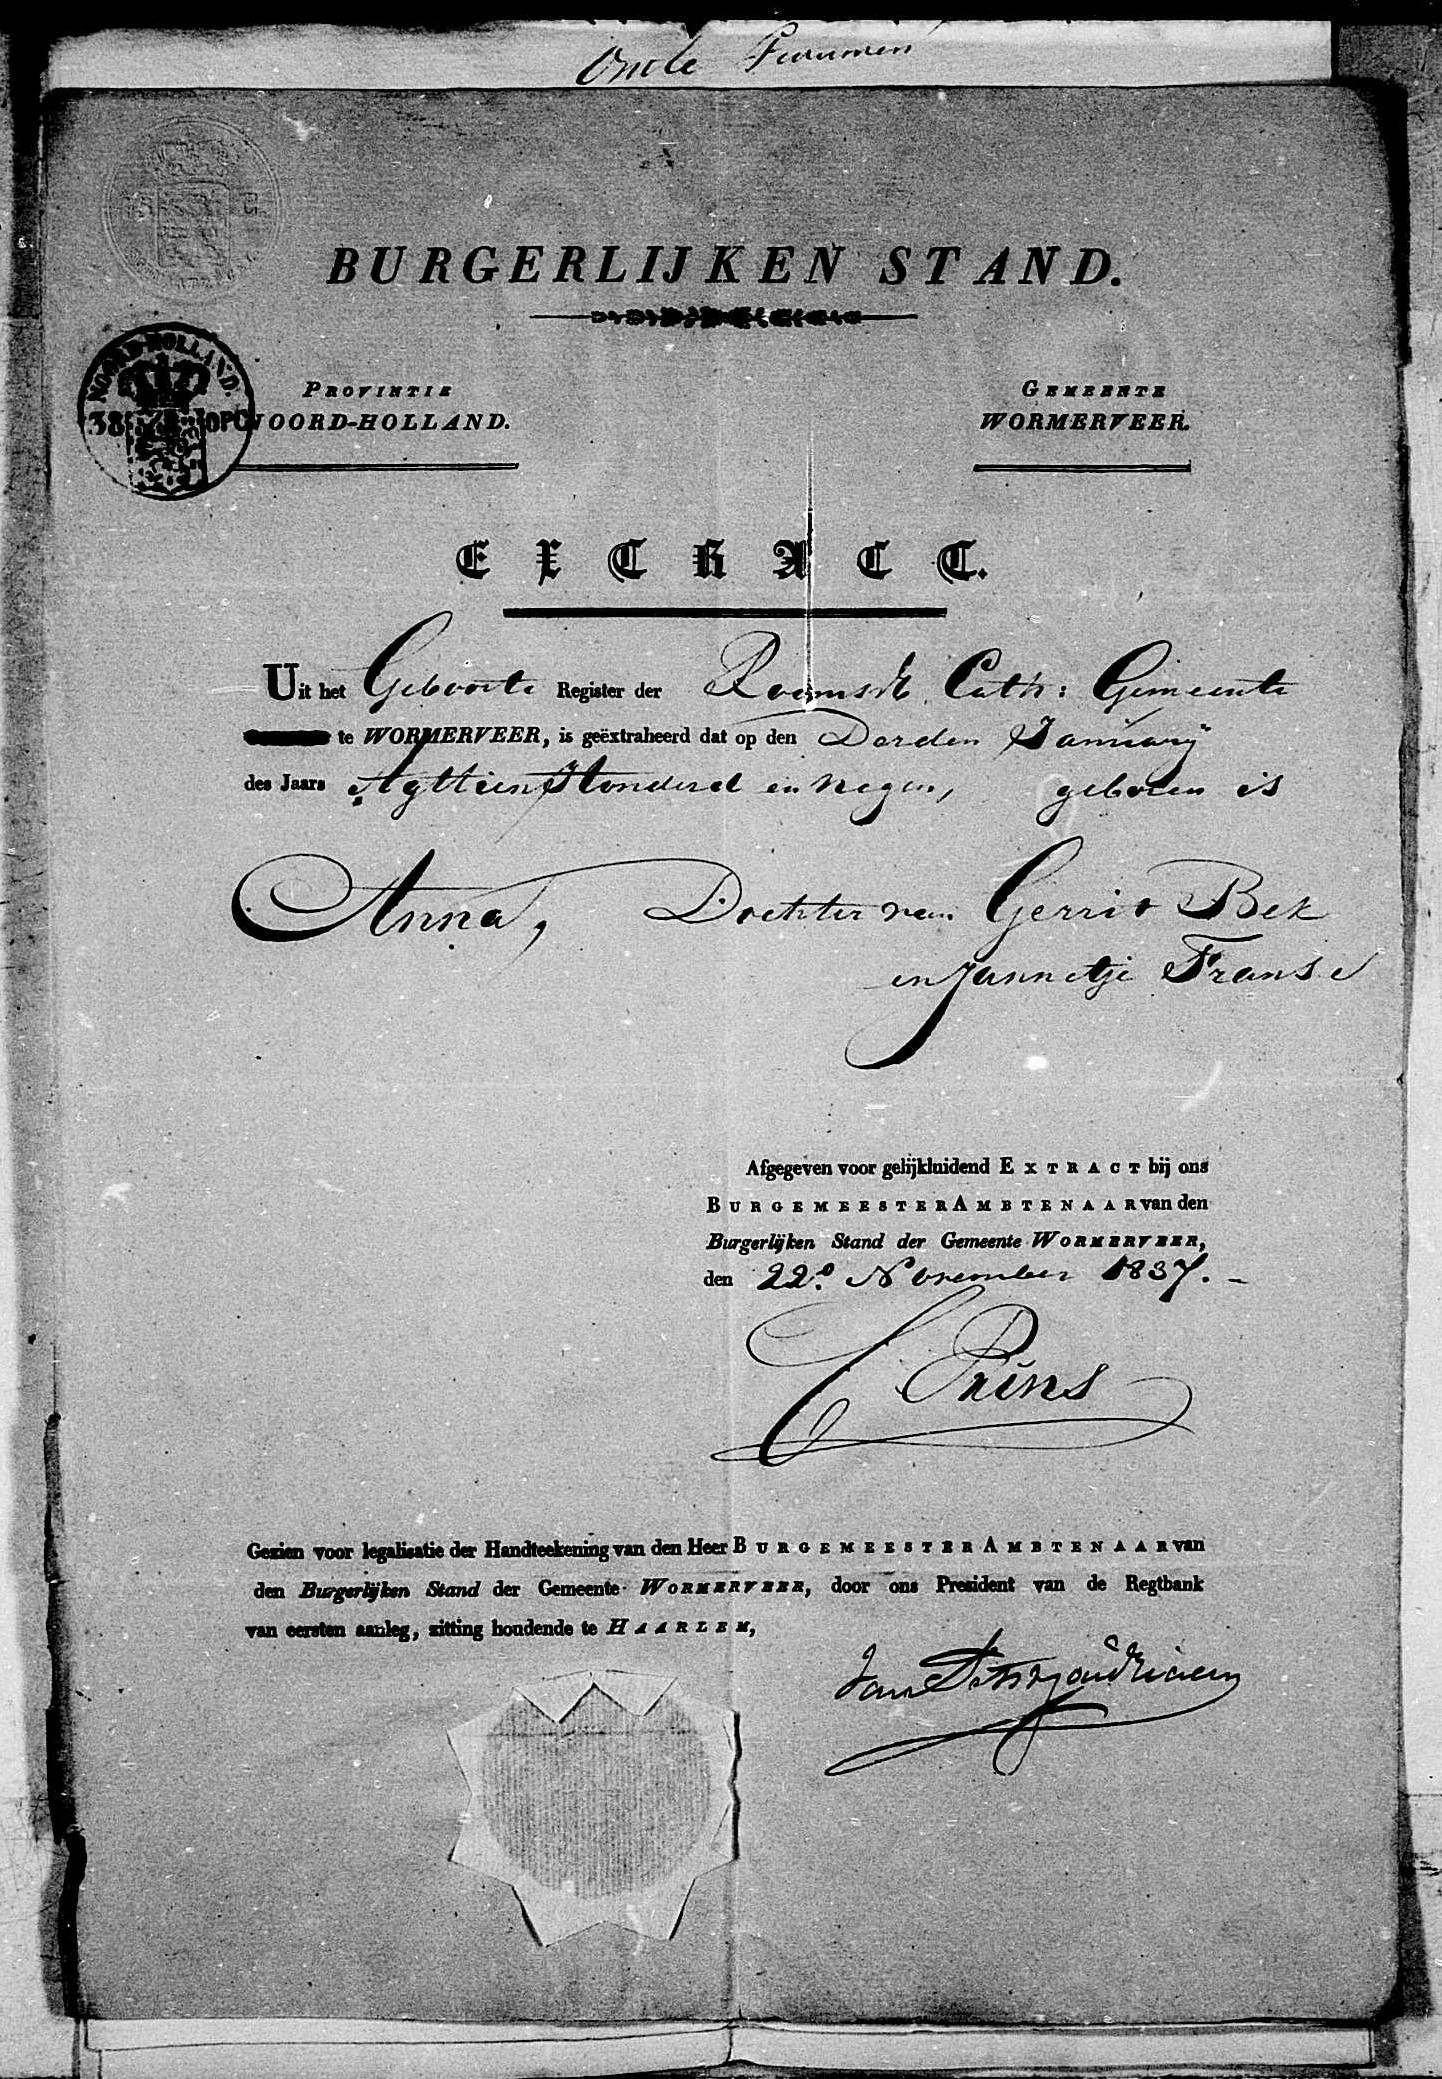 BURGERLIJKEN STAND.
NOORD-HOLLAND.
38
OPC
PROVINTIE
NOORD-HOLLAND.
GEMEENTE
WORMERVEER.
EXTRACT.
Uit het Geboorte Register der Roomsch Cath: Gemeente
te WORMERVEER, is geëxtraheerd dat op den Darden Januarÿ
des Jaars Agttien Honderd en Negen, geboren is
Anna, Dochter van Gerrit Bek
en Jannetje Franse
Afgegeven voor gelijkluidend EXTRACT bij ons
BURGEMEESTER AMBTENAAR van den
Burgerlijken Stand der Gemeente WORMERVEER,
den 22e November 1837. -
C Prins
Gezien voor legalisatie der Handteekening van den Heer BURGEMEESTER AMBTENAAR van
den Burgerlijken Stand der Gemeente WORMERVEER, door ons President van de Regtbank
van eersten aanleg, zitting houdende te HAARLEM,